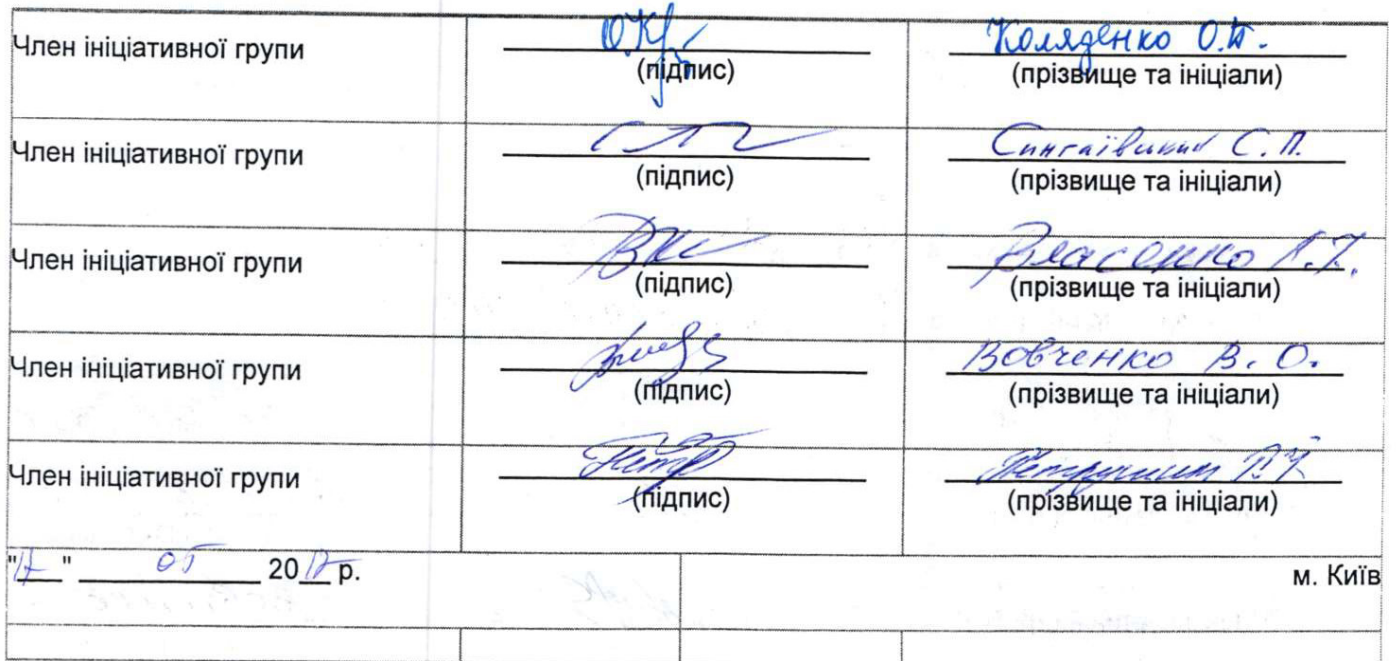 Член ініціативної групи
(підпис)
Коляденко О.
(прізвище та ініціали)
Член ініціативної групи
(підпис)
С. П.
(прізвище та ініціали)
Член ініціативної групи
(підпис)
Власенко
(прізвище та ініціали)
Член ініціативної групи
(підпис)
Вовченко В. О.
(прізвище та ініціали)
Член ініціативної групи
(підпис)
(прізвище та ініціали)
"17" 05 2017 р.
м. Київ